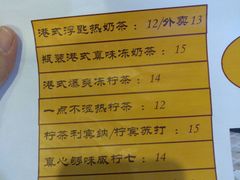 港式浮匙热奶茶：12/外卖13
瓶装港式真味冻奶茶：15
港式爆爽冻柠茶：14
一点不涩热柠茶：12
柠茶利宾纳/柠宾苏打：15
真心郁味咸柠七：14